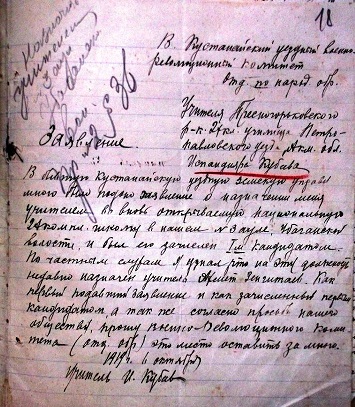 18
В Кустанайский уездный военно-
революционный комитет
отд. по народ. обр.
Учителя Пресногорьковского
р-к. 2х кл. училища Петро-
павловского уезд. Акм. обл.
Испандияра Кубева
Заявление.
В бытную Кустанайскую уездную земскую управу
мною было подано заявление о назначении меня
учителем во вновь открываемую национальную
2х комл. школу в нашем №3 ауле, Убаганской
волости, и был его зачислен Iм кандидатом.
По частным слухам я узнал что на эту должность
недавно назначен учитель Сенгитаев. Как
первый подавший заявление и как зачисленный первым
кандидатом, а так же согласно просьбе нашего
общества, прошу военно-революционного коми-
тета (отд. обр) это место оставить за мною.
1919 г. 6 октября
Учитель И. Кубев